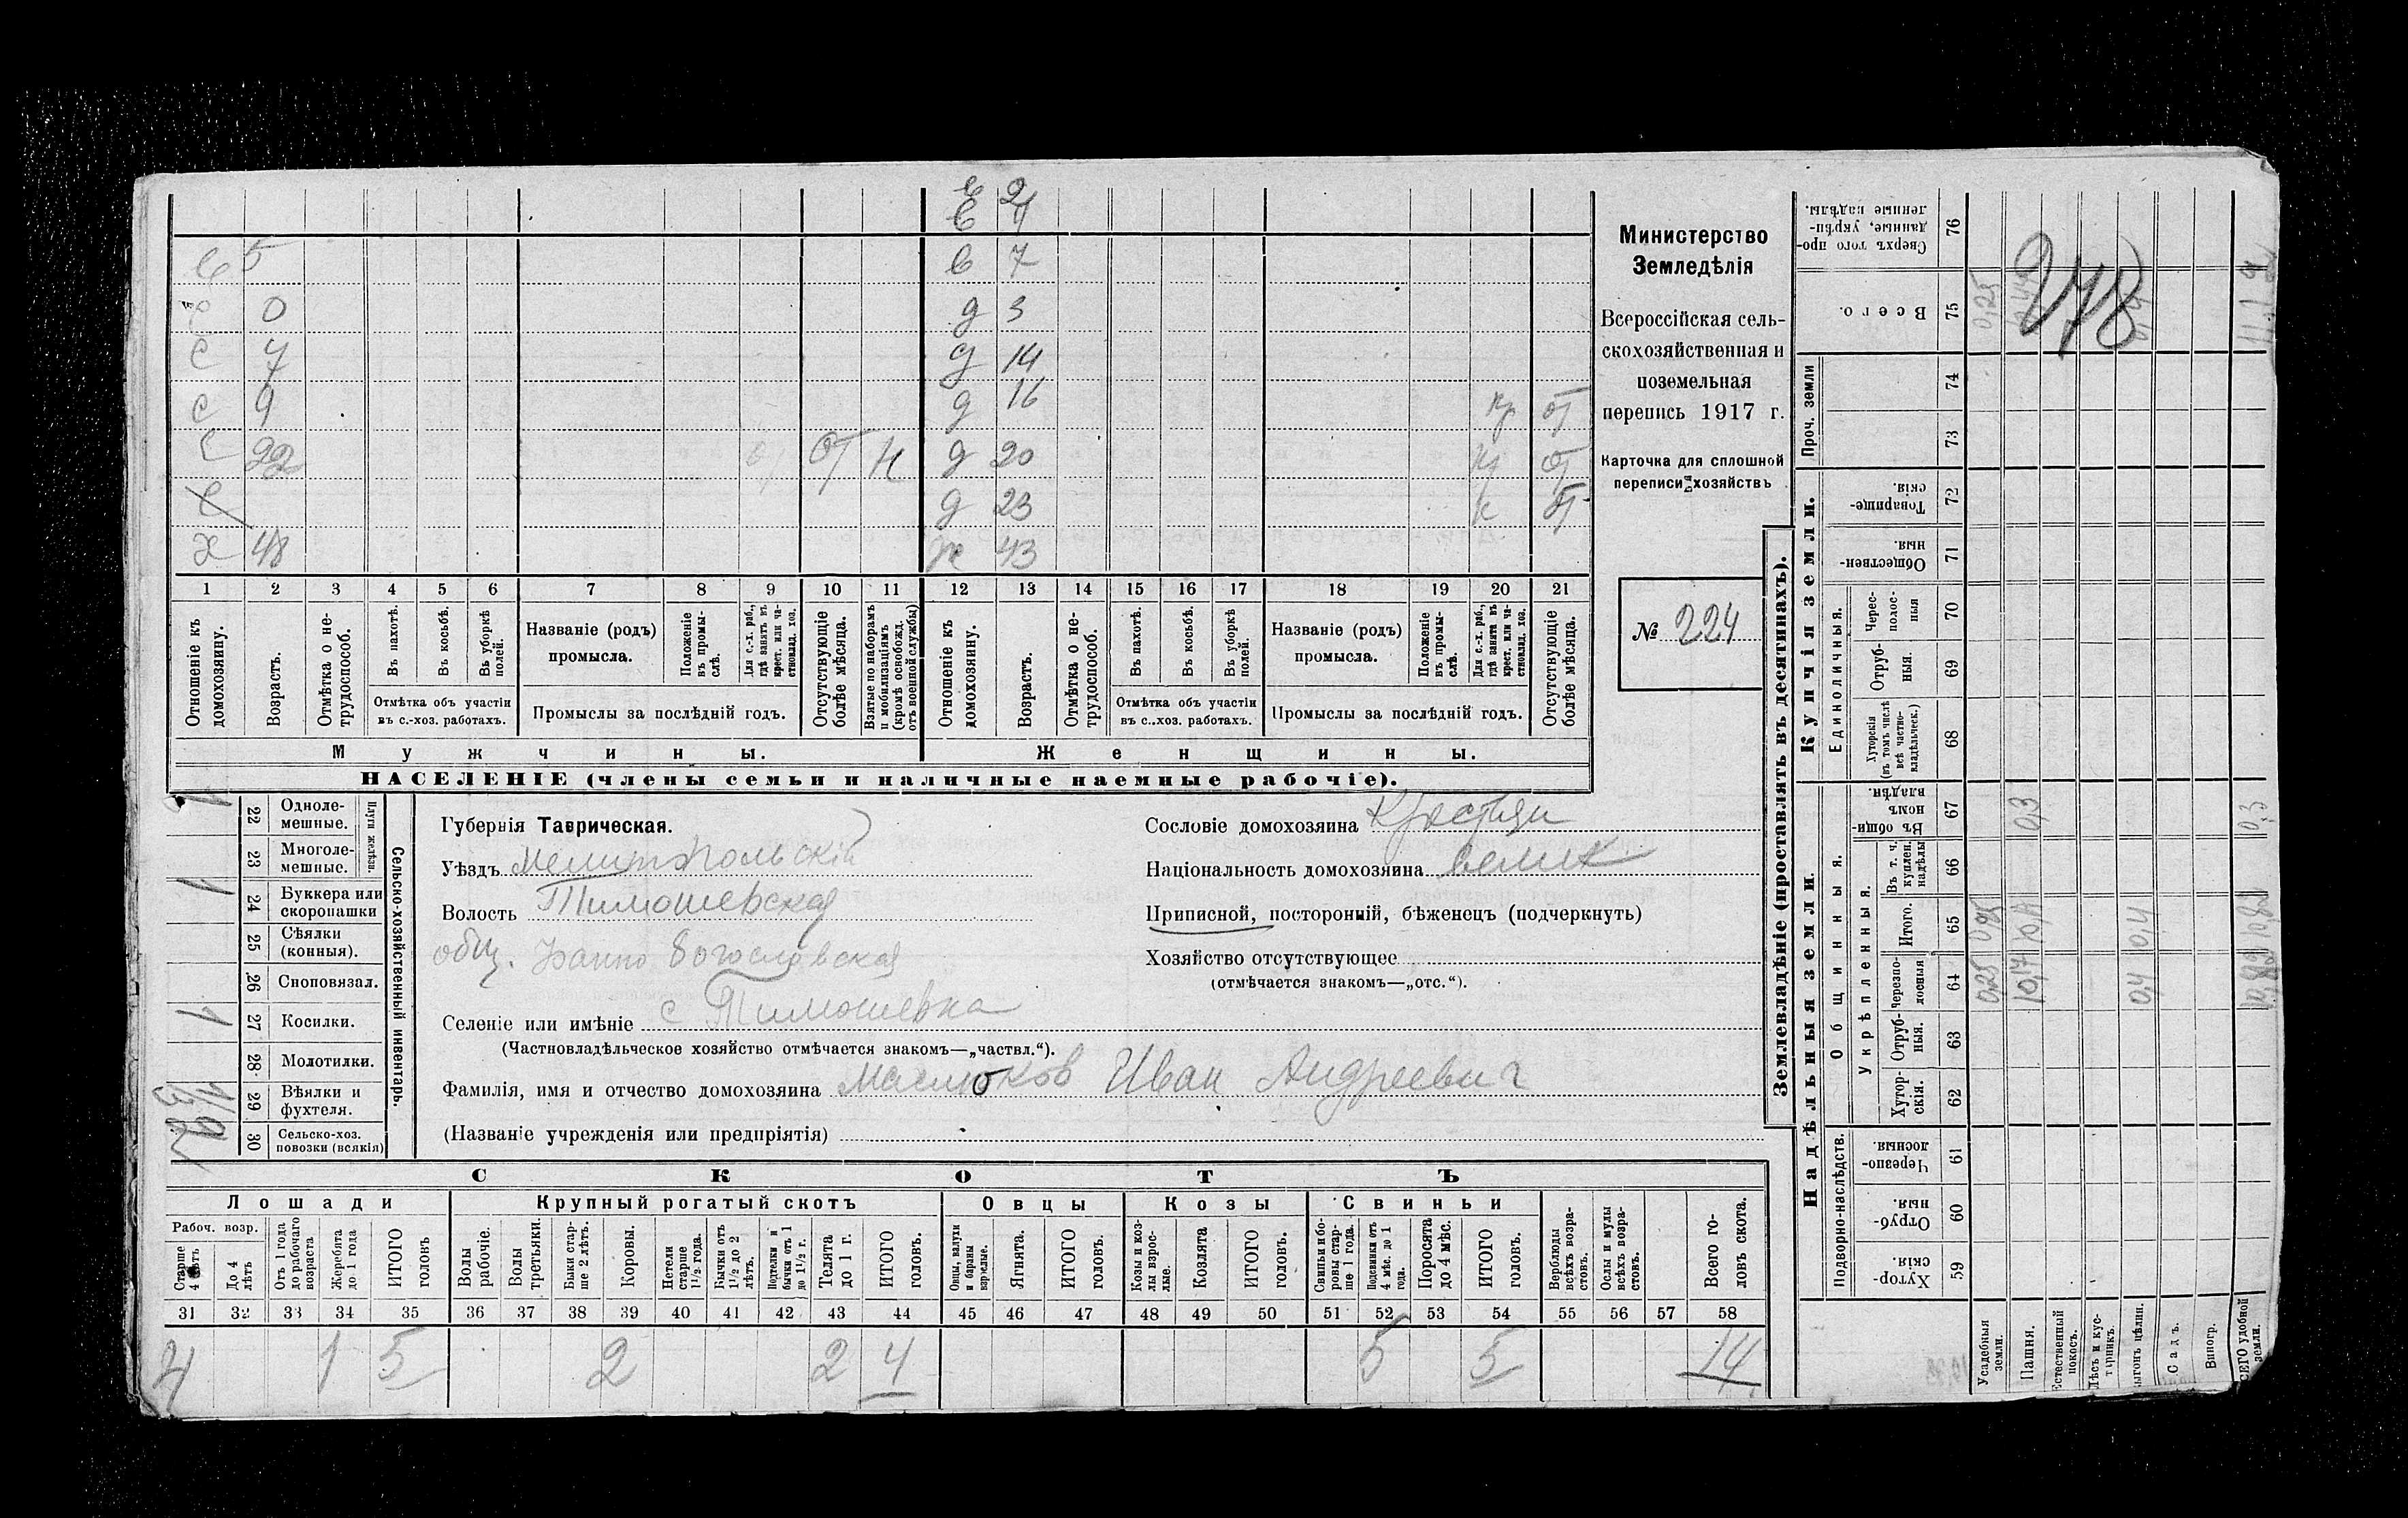 в 2
в 4
с 5 в 7
0 д 3
с 7 д 14
с 9 д 16 кр от
с 22 от от н д 20 кр от
с д 23 к от
х 48 ж 43
1 2 3 4 5 6 7 8 9 10 11 12 13 14 15 16 17 18 19 20 21
Отношеніе къ домохозяину.
Возрастъ.
Отмѣтка о не-
трудоспособ.
Въ пахотѣ.
Въ косьбѣ.
Въ уборкѣ
полей.
Отмѣтка объ участіи
въ с.-хоз. работахъ.
Названіе (родъ)
промысла.
Положеніе
въ промы-
слѣ.
Для с.-х. раб.,
гдѣ занятъ въ
крест. или ча-
стновлад. хоз.
Промыслы за послѣдній годъ.
Отсутствующіе
болѣе мѣсяца.
Взятые по наборамъ
и мобилизаціямъ
(кромѣ освобожд.
отъ военной службы)
Отношеніе къ
домохозяину.
Возрастъ.
Отмѣтка о не-
трудоспособ.
Въ пахотѣ.
Въ косьбѣ.
Въ уборкѣ
полей.
Отмѣтка объ участіи
въ с.-хоз. работахъ.
Названіе (родъ)
промысла.
Положеніе
въ промы-
слѣ.
Для с.-х. раб.,
гдѣ занята въ
крест. или ча-
стновлад. хоз.
Промыслы за послѣдній годъ.
Отсутствующіе
болѣе мѣсяца.
Мужчины. Женщины.
НАСЕЛЕНІЕ (члены семьи и наличные наемные рабочіе).
Министерство
Земледѣлія
Всероссійская сель-
скохозяйственная и
поземельная
перепись 1917 г.
Карточка для сплошной
переписи хозяйствъ
№ 224
Сельско-хозяйственный инвентарь.
Плуги желѣзн.
22 Одноле-
мешные.
23 Многоле-
мешные.
24 Буккера или
скоропашки
25 Сѣялки
(конныя).
26 Сноповязал.
27 Косилки.
28 Молотилки.
29 Вѣялки и
фухтеля.
30 Сельско-хоз.
повозки (всякія)
1
1
1
1/3
2
Губернія Таврическая.
Уѣздъ Мелитопольскій
Волость Тимошевская
общ. Іоанно Богословская
Селеніе или имѣніе с Тимошевка
(Частновладѣльческое хозяйство отмѣчается знакомъ—„частвл.“).
Фамилія, имя и отчество домохозяина Маслоков Иван Андреевич
(Названіе учрежденія или предпріятія)
Сословіе домохозяина Крестьян
Національность домохозяина велик
Приписной, посторонній, бѣженецъ (подчеркнуть)
Хозяйство отсутствующее
(отмѣчается знакомъ—„отс.“).
СКОТЪ
Лошади Крупный рогатый скотъ Овцы Козы Свиньи
Рабоч. возр.
Старше
4 лѣтъ
До 4
лѣтъ
Отъ 1 года
до рабочаго
возраста
Жеребята
до 1 года
ИТОГО
головъ
Волы
рабочіе.
Волы
третьяки.
Быки стар-
ше 2 лѣтъ.
Коровы.
Нетели
старше
1½ года.
Бычки отъ
1½ до 2
лѣтъ.
Подтелки и
бычки отъ 1
до 1½ г.
Телята
до 1 г.
ИТОГО
головъ.
Овцы, валухи
и бараны
взрослые.
Ягнята.
ИТОГО
головъ.
Козы и коз-
лы взрос-
лые.
Козлята
ИТОГО
головъ.
Свиньи и бо-
ровы стар-
ше 1 года.
Подсвинки отъ
4 мѣс. до 1
года.
Поросята
до 4 мѣс.
ИТОГО
головъ.
Верблюды
всѣхъ возра-
стовъ.
Ослы и мулы
всѣхъ возра-
стовъ.
Всего го-
ловъ скота.
31 32 33 34 35 36 37 38 39 40 41 42 43 44 45 46 47 48 49 50 51 52 53 54 55 56 57 58
4 1 5 2 2 4 5 5 14
Землевладѣніе (проставлять въ десятинахъ).
Надѣльныя земли. Купчія земли.
Подворно-наслѣдств.
Общинныя.
Укрѣпленныя.
Единоличныя.
Проч. земли
Хутор-
скія. 59
Отруб-
ныя. 60
Черезпо-
лосныя 61
Хутор-
скія. 62
Отруб-
ныя. 63
Черезпо-
лосныя 64
Итого. 65
Въ т. ч.
куплен.
надѣлы 66
Въ общин-
номъ
владѣн. 67
Хуторскія
(въ томъ числѣ
всѣ частно-
владѣльческ.) 68
Отруб-
ныя. 69
Черес-
полос-
ныя 70
Обществен-
ныя. 71
Товарище-
скія. 72
73
74
Всего. 75
Сверхъ того про-
данные, укрѣп-
ленные надѣлы. 76
Усадебныя
земли.
Пашня.
Естественный
покосъ.
Лѣсъ и кус-
тарникъ.
Выгонъ цѣлин.
Садъ.
Виногр.
ВСЕГО удобной
земли.
0,25 0,25 0,25
10,17 0,3
0,4 0,4
10,82 10,82 0,3
278